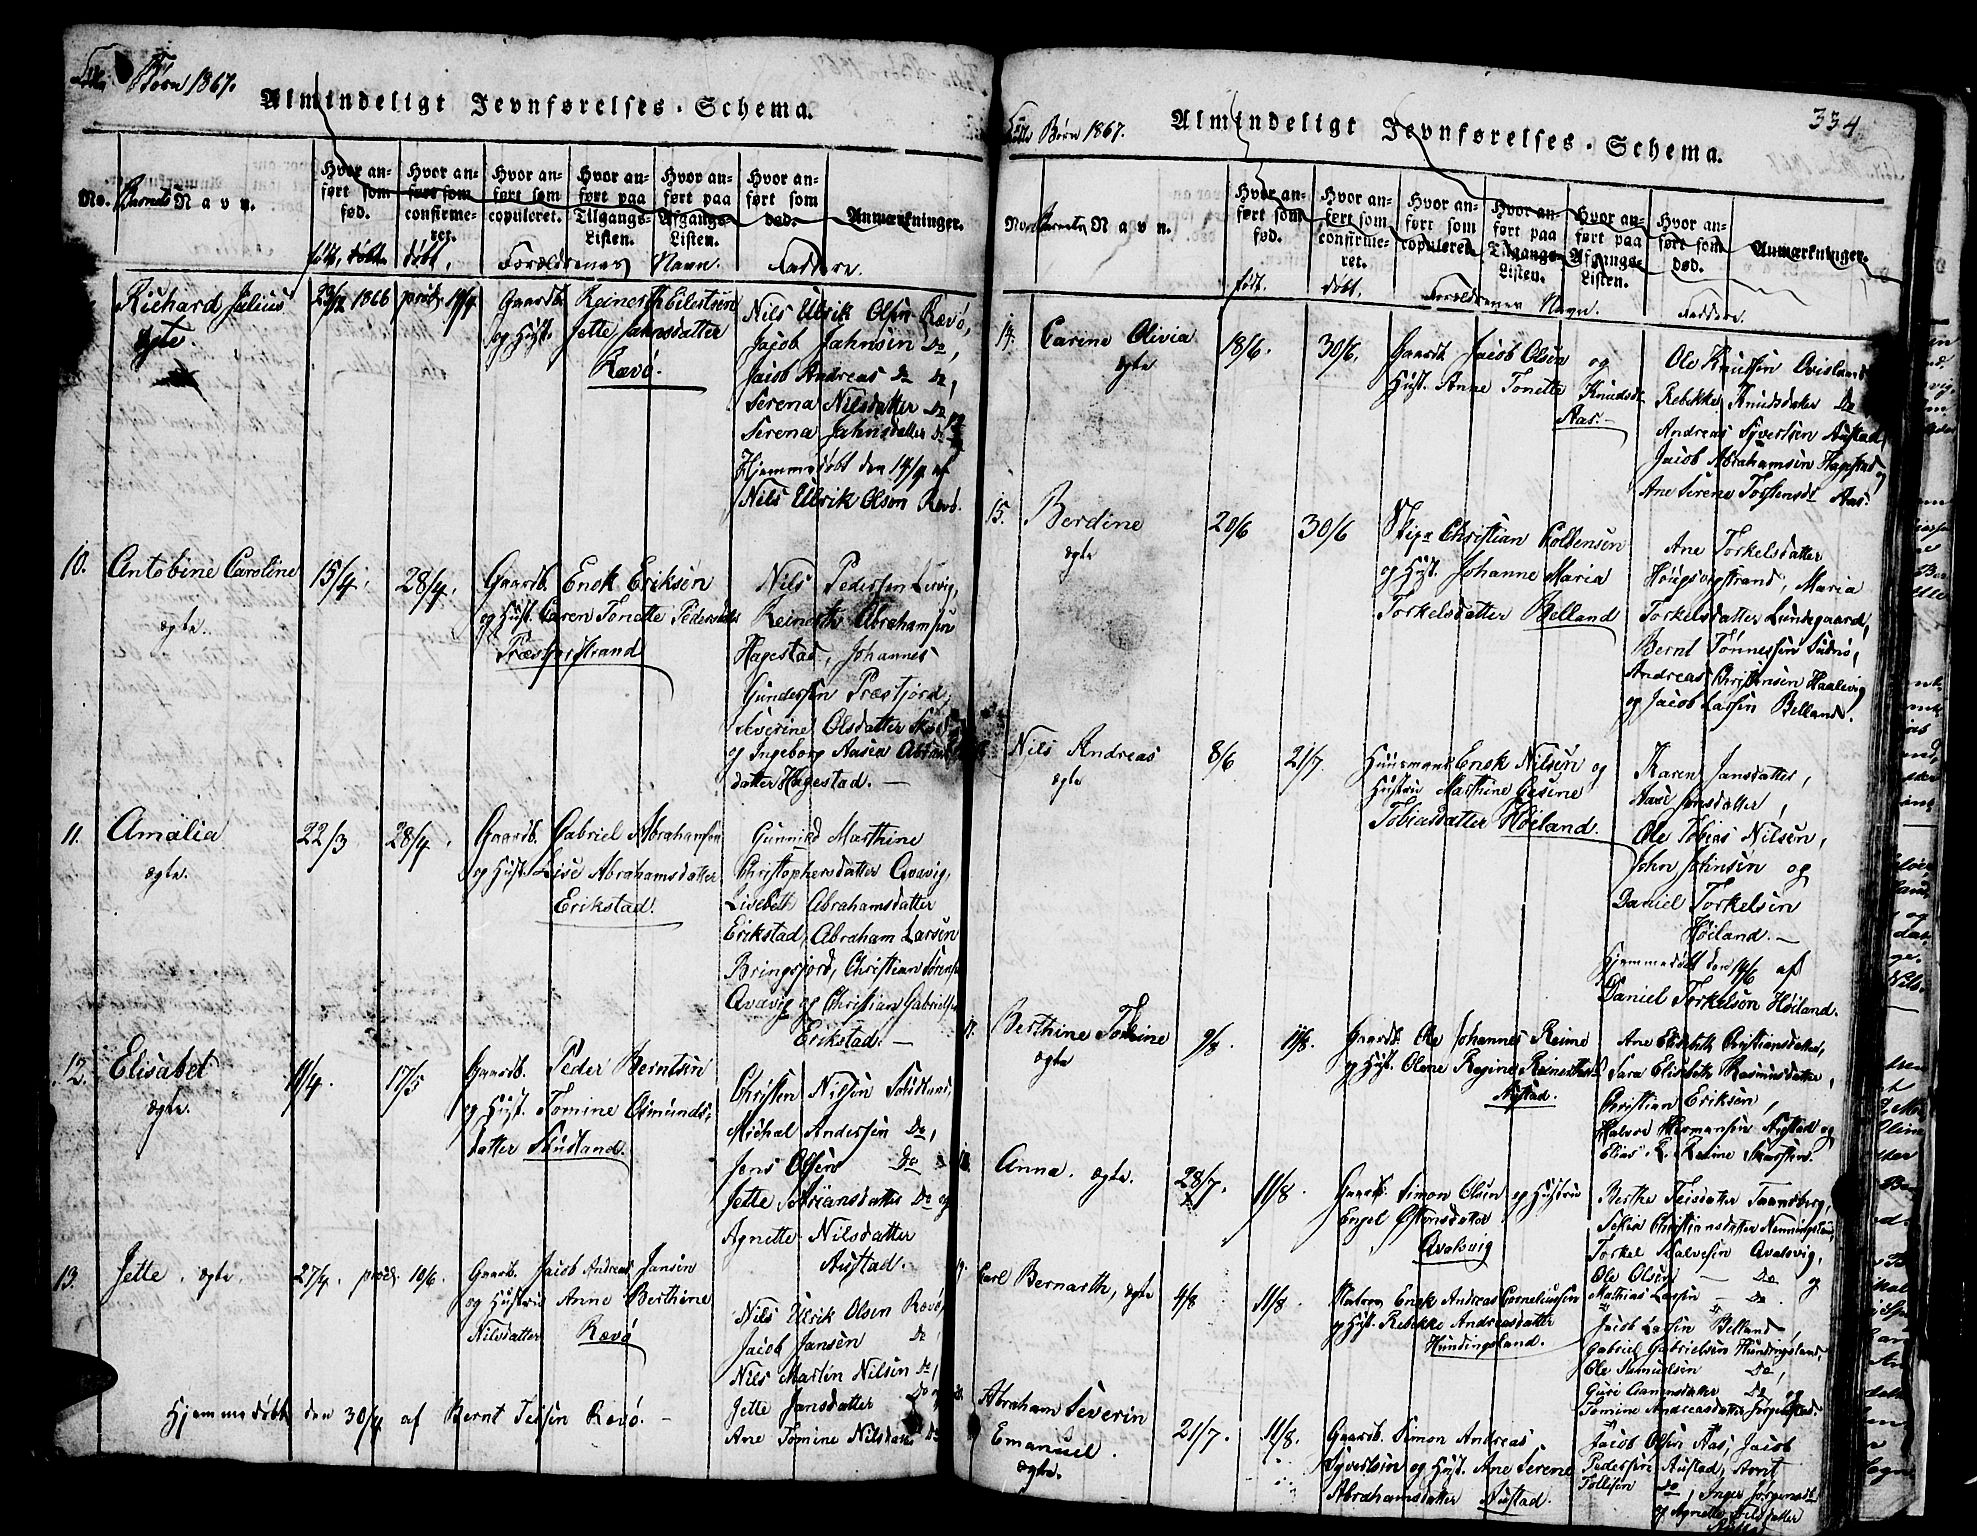 Børn 1867.
Almindeligt Jevnførelses-Schema.
No. Barnets Navn.
Hvor anført som fød.
Hvor anført som confirmeret.
Hvor anført som copuleret.
Hvor anført paa Tilgangs-Listen.
Hvor anført paa Afgangs-Listen.
Hvor anført som død.
Anmærkninger.
døbt.
Forældrenes Navn.
Faddere.
Richard Julius
ægte.
1866
Gaardb.
og Hust. Jette Jahnsdatter
Rævø.
Nils Ullrik Olsen Rævø,
Jacob Jahnsen Do,
Jacob Andreas Do Do,
Serena Nilsdatter Do
Serena Jahnsdatter Do
Hjemmedøbt den 14/4 af
Nils Ullrik Olsen Rævø.
10. Antobine Caroline
ægte.
15/4.
28/4.
Gaardb. Enok Eriksen
og Hust. Caren Tonette Pedersdatter
Nils Pedersen
Reinerth Abrahamsen
Hagestad, Johannes
Gundersen Præstfjord,
Severine Olsdatter
og Ingeborg Aasea
datter Hagestad. —
11. Amalia
ægte.
22/3
28/4.
Gaardb. Gabriel Abrahamsen
og Hust. Lise Abrahamsdatter
Erikstad.
Gunnild Marthine
Christophersdatter Qvavig,
Lisebeth Abrahamsdatter
Erikstad, Abraham Larsen
Bringsfjord, Christian Sørensen
Qvavig og Christian Gabrielsen
Erikstad. —
12. Elisabet
ægte.
11/4.
17/5
Gaardb. Peder Berntsen
og Hust. Tomine Osmunds-
datter
Christen Nilsen
Michal Andersen Do,
Jens Olsen Do
Jette Do og
Agnette Nilsdatter
Austad.
13. Jette. ægte.
27/4. præs. 10/6.
Gaardb. Jacob Andreas Jansen
og Hustrue Anne Berthine
Nilsdatter Rævø
Nils Ullrik Olsen Rævø,
Jacob Jansen Do,
Nils Martin Nilsen Do,
Jette Jansdatter Do
Ane Tomine Nilsdatter Do
Hjemmedøbt den 30/4 af Bernt Rævø. —
334
Børn 1867.
Almindeligt Jevnførelses-Schema.
Barnets Navn.
Hvor anført som fød.
Hvor anført som confirmeret.
Hvor anført som copuleret.
Hvor anført paa Tilgangs-Listen.
Hvor anført paa Afgangs-Listen.
Hvor anført som død.
Anmærkninger.
født.
døbt.
Forældrenes Navn.
Faddere.
14. Carine Olivia
ægte
18/6.
30/6.
Gaardb. Jacob Olsen og
Hust. Anne Tonette Knudsdt.
Aas.
Ole Knudsen
Rebekke Knudsdatter Do
Andreas Syvertsen Austad
Jacob Abrahamsen Hagestad
Ane Serene Torstensdt Aas.
15. Berdine
ægte
20/6
30/6
Christian
og Hust. Johanne Maria
Torkelsdatter Belland
Ane Torkelsdatter
Maria
Torkelsdatter Lundegaard,
Bernt Tønnessen
Andreas Christensen Haalevig
og Jacob Larsen Belland.
Nils Andreas
ægte
8/6
21/7.
Huusmand Enok Nilsen og
Hustrue Marthine Gusine
Tobiasdatter Høiland.
Karen Jansdatter,
Aase Jansdatter,
Ole Tobias Nilsen,
John Johnsen og
Daniel Torkelsen
Høiland. —
Hjemmedøbt den 14/6 af
Daniel Torkelson Høiland.
17. Berthine Tomine
ægte
9/8.
11/8.
Gaardb. Ole Johannes Reime
og Hust. Olene Regine
Austad.
Ane Elisebeth Christiansdatter,
Sara Elisebeth Rasmusdatter,
Christian Eriksen,
Halvor Hermansen Austad og
Elias
18. Anna. ægte.
28/7.
11/8.
Gaardb. Simon Olsen og Hustrue
Engel
Qvalsvig
Berthe
Christiansdatter
Torkel Qvalsvig,
Ole Olsen — Do og
Mathias Larsen — Do.
19. Carl Bernarth, ægte
4/8
11/8.
Enok Andreas Corneliussen
og Hust. Rebekke Andreasdatter
Hundingsland.
Jacob Larsen Belland,
Gabriel Gabrielsen Hundingsland,
Ole Samuelsen Do,
Guri Do og
Tomine Andreasdatter
20. Abraham Severin
Emanuel.
ægte.
21/7.
11/8.
Gaardb. Simon Andreas
Syvertsen og Hust. Ane Serene
Abrahamsdatter Austad.
Jacob Olsen Aas, Jacob
Pedersen Austad,
Tollisen Do, Inger
og Agnette Nilsdatter